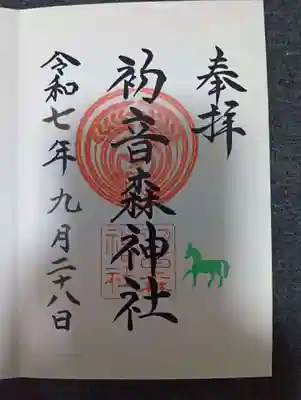 奉拝
初音森神社
令和七年九月二十八日